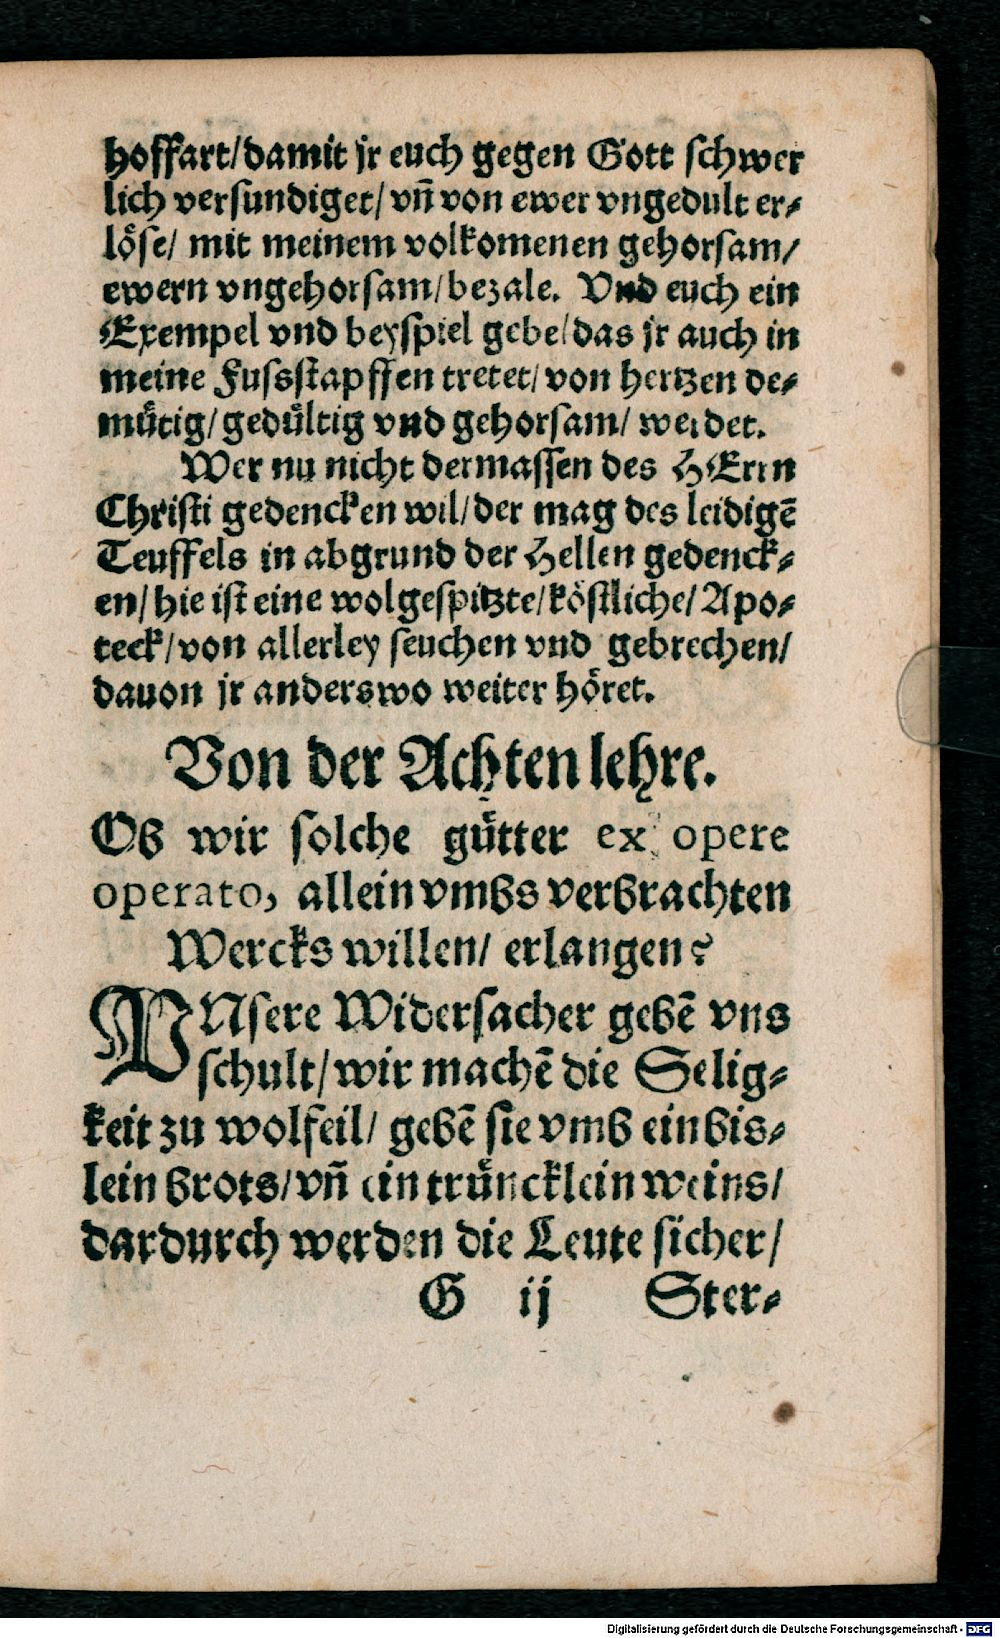 hoffart/damit jr euch gegen Gott schwer
lich versundiget/ vñ von ewer vngedult er⸗
löse/ mit meinem volkomenen gehorsam/
ewern vngehorsam/bezale. Vnd euch ein
Exempel vnd beyspiel gebe/das jr auch in
meine Fussstapffen tretet/ von hertzen de⸗
mütig/ gedültig vnd gehorsam/ werdet.
Wer nu nicht dermassen des HErrn
Christi gedencken wil/der mag des leidigē
Teuffels in abgrund der Hellen gedenck⸗
en/ hie ist eine wolgespitzte/köstliche/ Apo⸗
teck/von allerley seuchen vnd gebrechen/
dauon jr anderswo weiter höret.
Von der Achten lehre.
Ob wir solche gütter ex opere
operato, allein vmbs verbrachten
Wercks willen/ erlangen?
VNsere Widersacher gebē vns
schult/wir machē die Selig⸗
keit zu wolfeil/ gebē sie vmb ein bis⸗
lein brots/vñ ein trüncklein weins/
dardurch werden die Leute sicher/
G ij Ster⸗
Digitalisierung gefördert durch die Deutsche Forschungsgemeinschaft - DFG